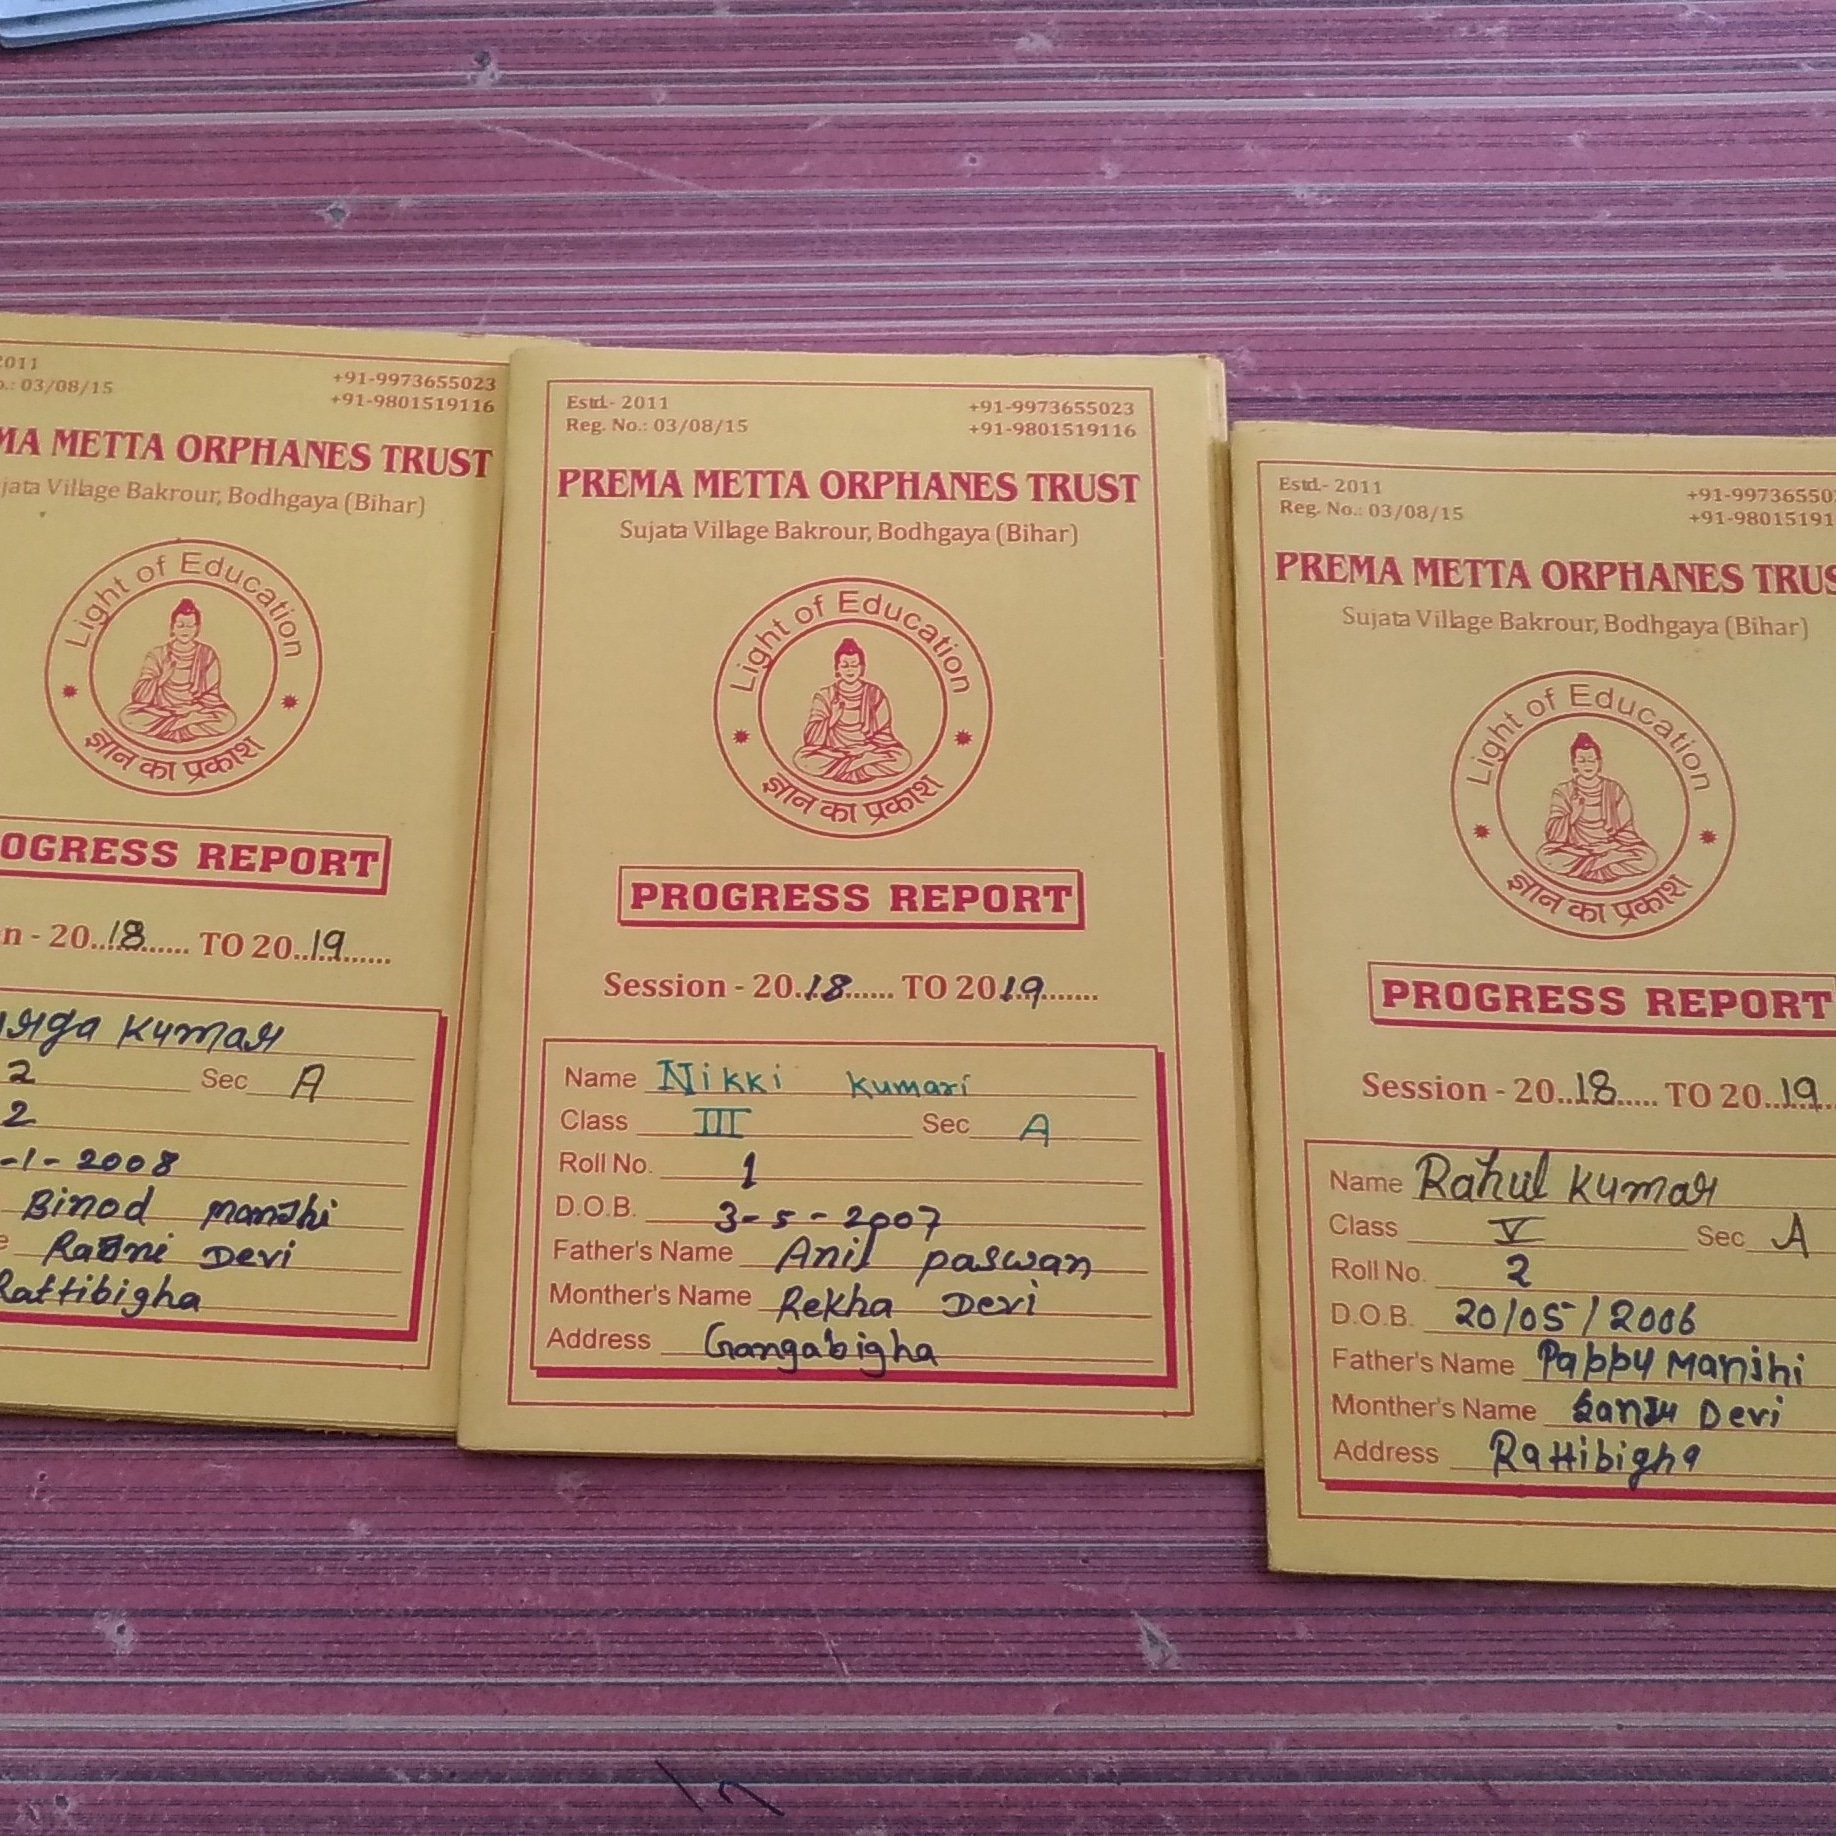 2011
.: 03/08/15
+91-9973655023
+91-9801519116
MA METTA ORPHANES TRUST
jata Village Bakrour, Bodhgaya (Bihar)
Light of Education
ज्ञान का प्रकाश
OGRESS REPORT
n - 20..18...... TO 20..19......
Kumar
2 Sec A
2
-1-2008
Binod Manjhi
Devi
Rattibigha
Estd.- 2011
Reg. No.: 03/08/15
+91-9973655023
+91-9801519116
PREMA METTA ORPHANES TRUST
Sujata Village Bakrour, Bodhgaya (Bihar)
Light of Education
ज्ञान का प्रकाश
PROGRESS REPORT
Session - 20.18...... TO 2019........
Name Nikki Kumari
Class III Sec A
Roll No. 1
D.O.B. 3-5-2007
Father's Name Anil Paswan
Monther's Name Rekha Devi
Address Gangabigha
Estd.- 2011
Reg. No.: 03/08/15
+91-99736550
+91-98015191
PREMA METTA ORPHANES TRUS
Sujata Village Bakrour, Bodhgaya (Bihar)
Light of Education
ज्ञान का प्रकाश
PROGRESS REPORT
Session - 20..18..... TO 20..19...
Name Rahul Kumar
Class V Sec A
Roll No. 2
D.O.B. 20/05/2006
Father's Name Pappu Manjhi
Monther's Name Sanju Devi
Address Rattibigha